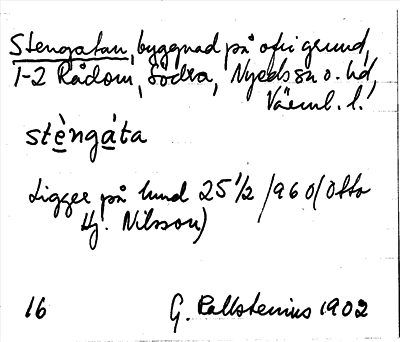 Stengatan, byggnad på ofri grund,
1-2 Rådom, Södra, Nyeds sn o. hd,
Värml. l.
stèngáta
Ligger på lund 25 1/2 /960 (Otto
Hj. Nilsson)
16 G. Kallstenius 1902